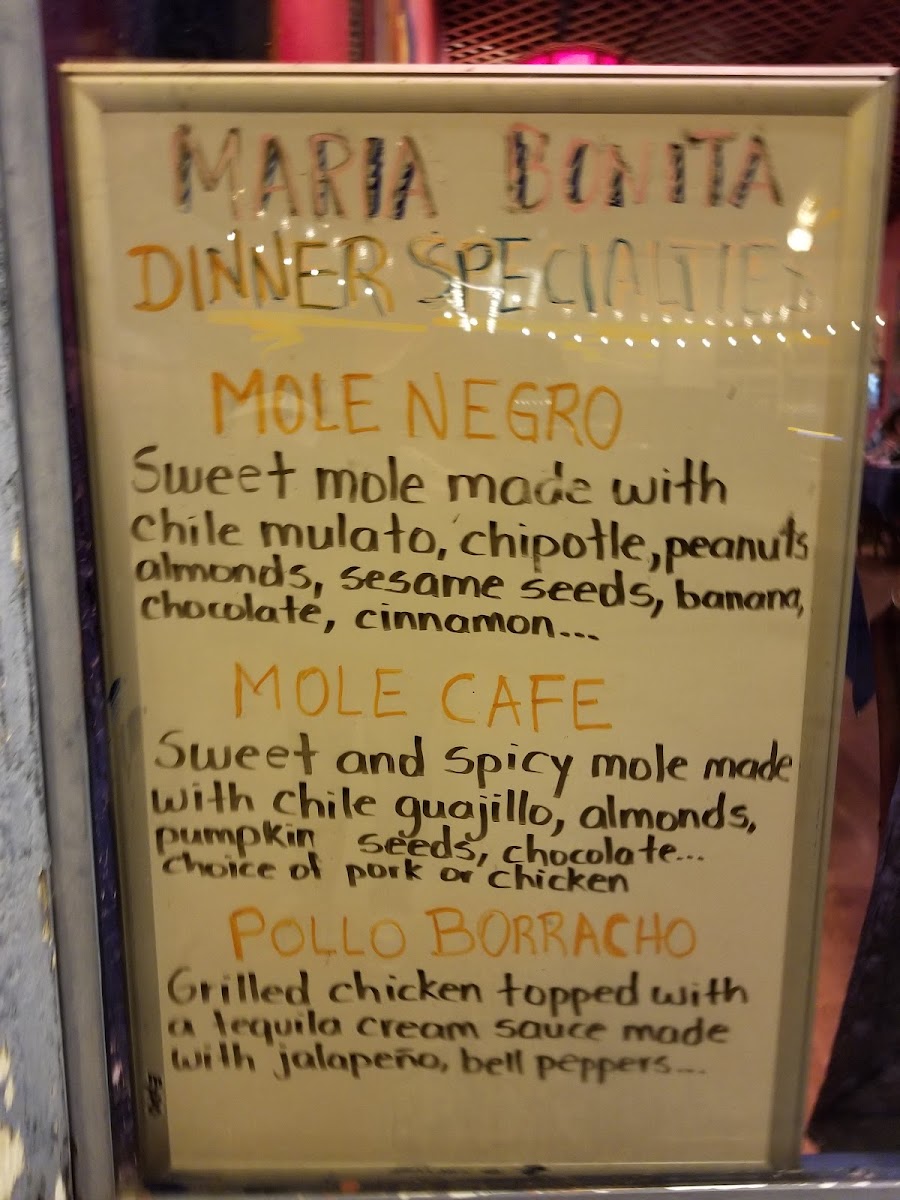 MARIA BONITA
DINNER SPECIALTIES
MOLE NEGRO
Sweet mole made with
chile mulato, chipotle, peanuts
almonds, sesame seeds, banana,
chocolate, cinnamon...
MOLE CAFE
Sweet and spicy mole made
with chile guajillo, almonds,
pumpkin seeds, chocolate...
choice of pork or chicken
POLLO BORRACHO
Grilled chicken topped with
a tequila cream sauce made
with jalapeño, bell peppers...